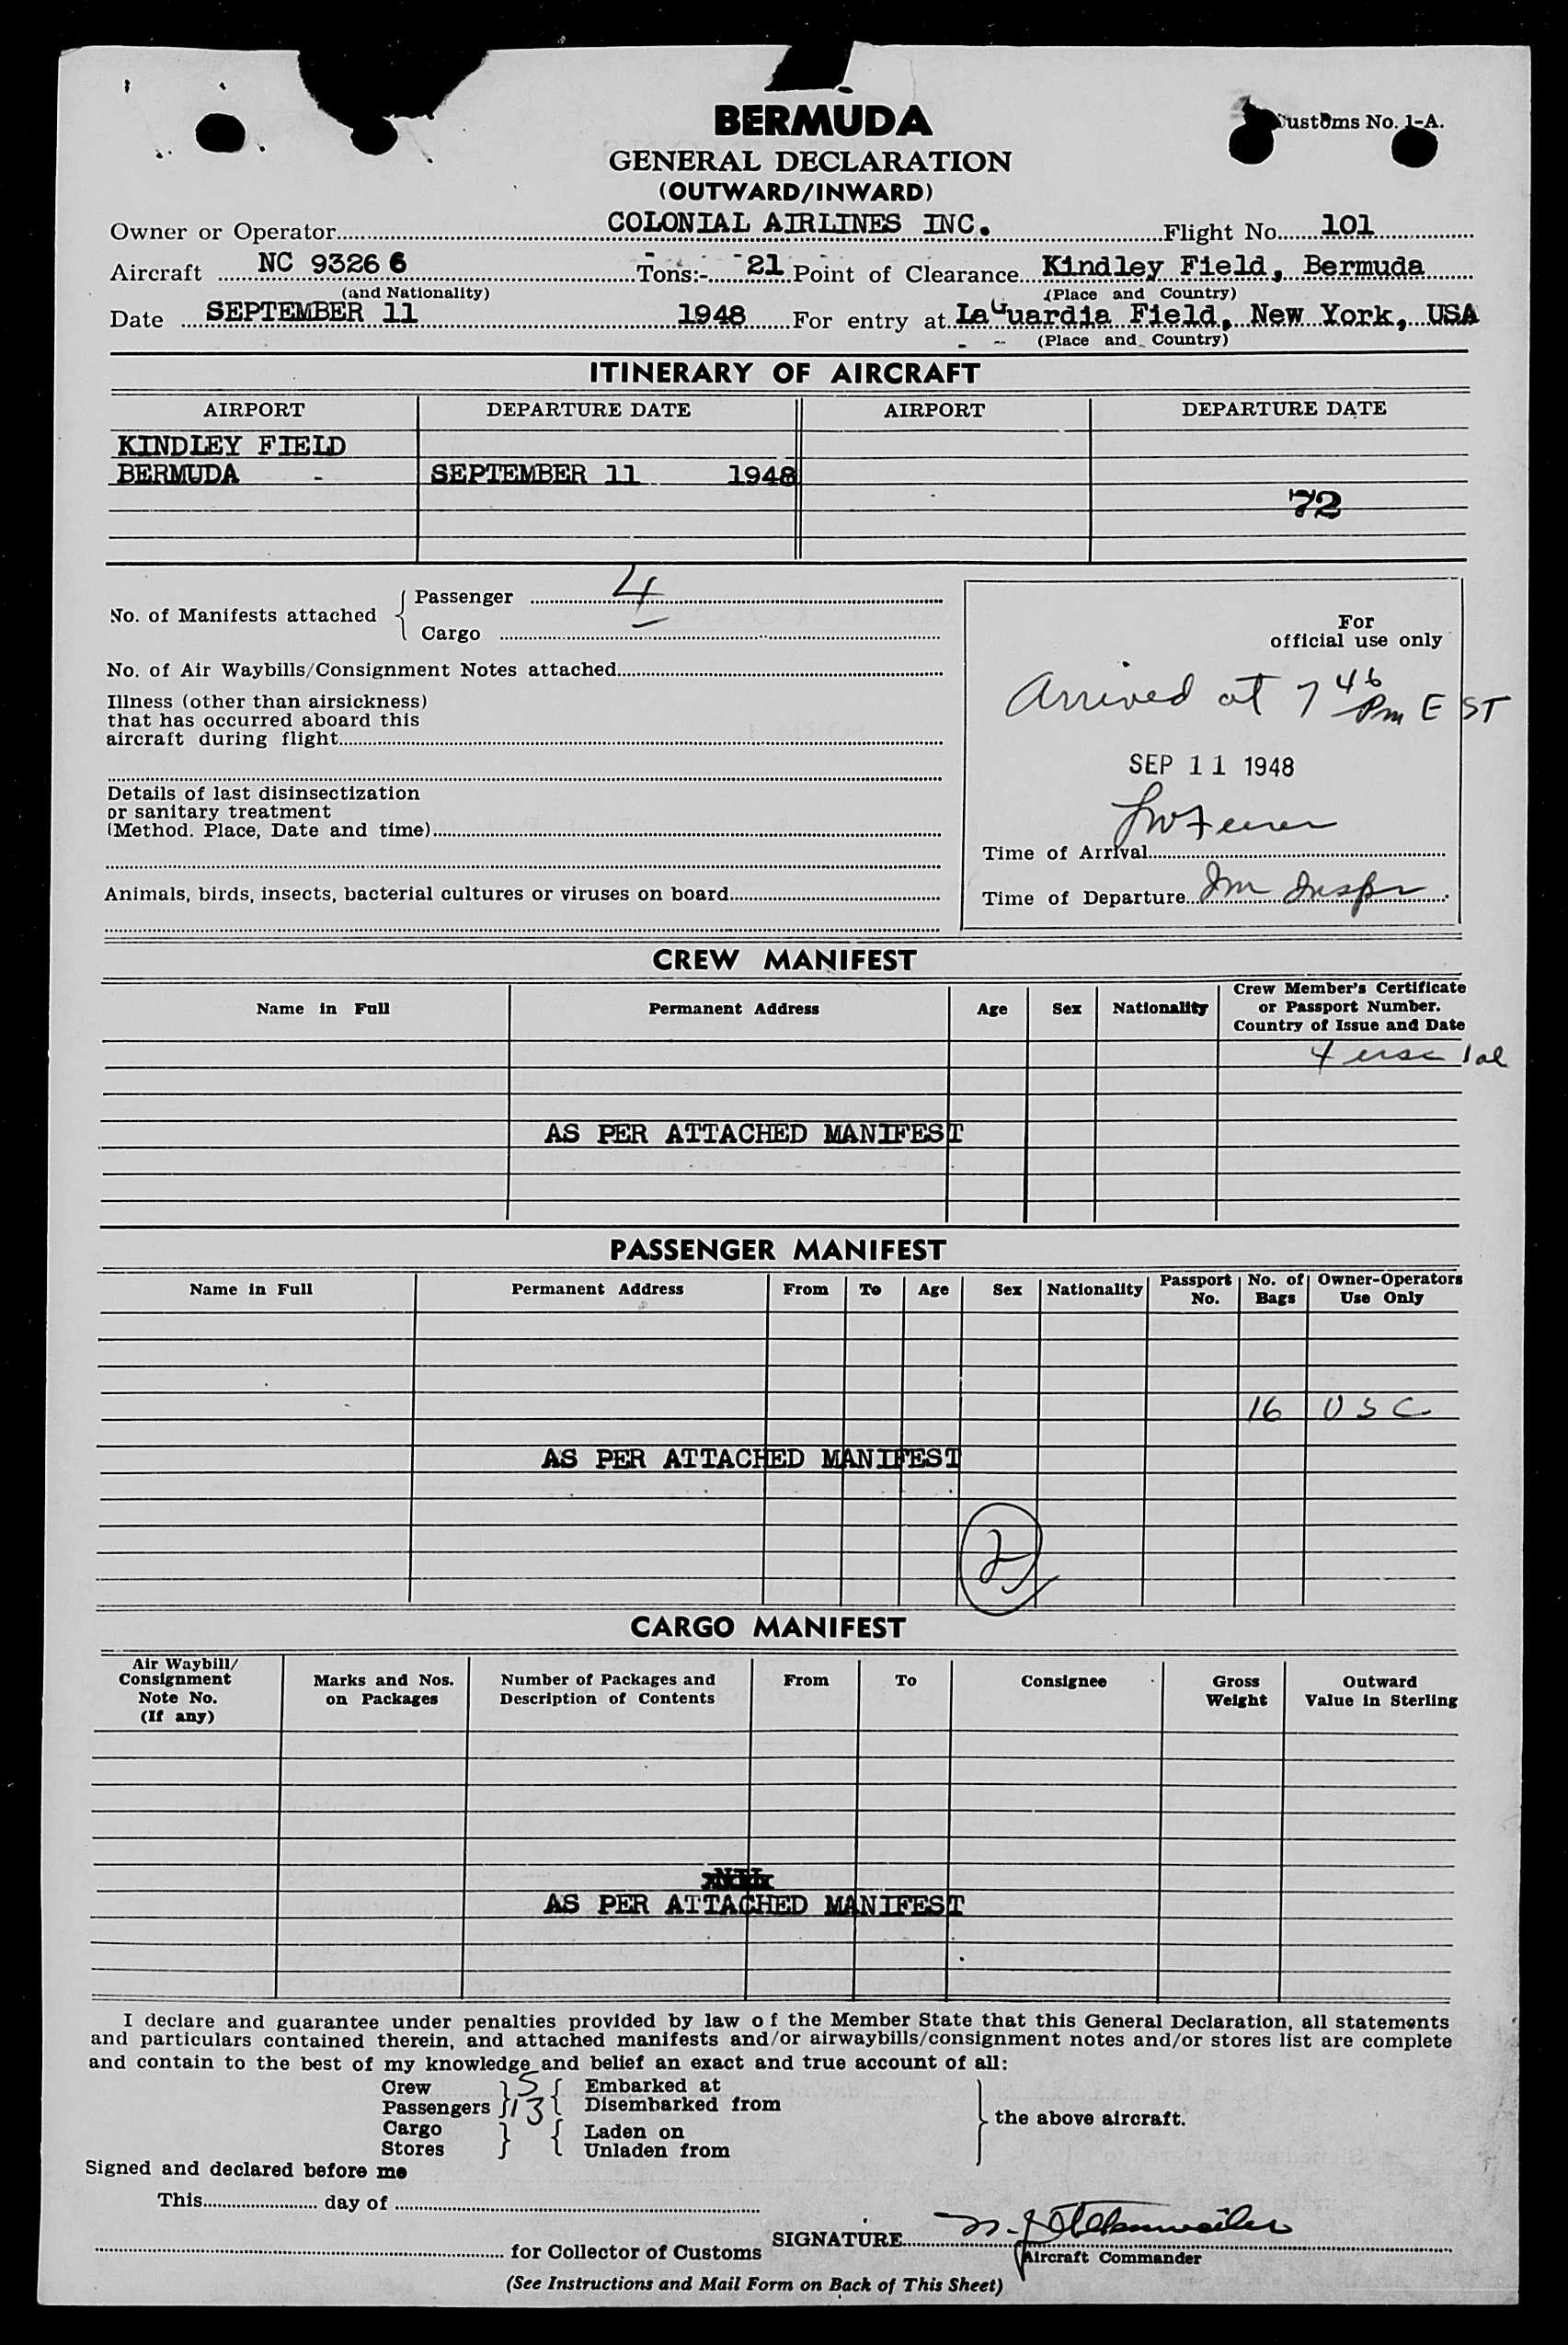 BERMUDA
Customs No. 1-A.
GENERAL DECLARATION
(OUTWARD/INWARD)
Owner or Operator COLONIAL AIRLINES INC. Flight No. 101
Aircraft NC 93266 Tons:- 21 Point of Clearance Kindley Field, Bermuda
(and Nationality) (Place and Country)
Date SEPTEMBER 11 1948 For entry at LaGuardia Field, New York, USA
(Place and Country)
ITINERARY OF AIRCRAFT
AIRPORT DEPARTURE DATE AIRPORT DEPARTURE DATE
KINDLEY FIELD
BERMUDA - SEPTEMBER 11 1948
72
No. of Manifests attached
Passenger 4
Cargo
No. of Air Waybills/Consignment Notes attached
Illness (other than airsickness)
that has occurred aboard this
aircraft during flight
Details of last disinsectization
or sanitary treatment
(Method. Place, Date and time)
Animals, birds, insects, bacterial cultures or viruses on board
For
official use only
Arrived at 7 46 Pm EST
SEP 11 1948
Time of Arrival
Time of Departure Im Inspr
CREW MANIFEST
Name in Full Permanent Address Age Sex Nationality Crew Member's Certificate
or Passport Number.
Country of Issue and Date
AS PER ATTACHED MANIFEST
PASSENGER MANIFEST
Name in Full Permanent Address From To Age Sex Nationality Passport No. No. of Bags Owner-Operators Use Only
16 USC
AS PER ATTACHED MANIFEST
2
CARGO MANIFEST
Air Waybill/
Consignment
Note No.
(If any)
Marks and Nos.
on Packages
Number of Packages and
Description of Contents
From To Consignee
Gross
Weight
Outward
Value in Sterling
AS PER ATTACHED MANIFEST
I declare and guarantee under penalties provided by law o f the Member State that this General Declaration, all statements
and particulars contained therein, and attached manifests and/or airwaybills/consignment notes and/or stores list are complete
and contain to the best of my knowledge and belief an exact and true account of all:
Crew 5 Embarked at
Passengers 13 Disembarked from
Cargo Laden on
Stores Unladen from
the above aircraft.
Signed and declared before me
This day of
SIGNATURE
for Collector of Customs
Aircraft Commander
(See Instructions and Mail Form on Back of This Sheet)